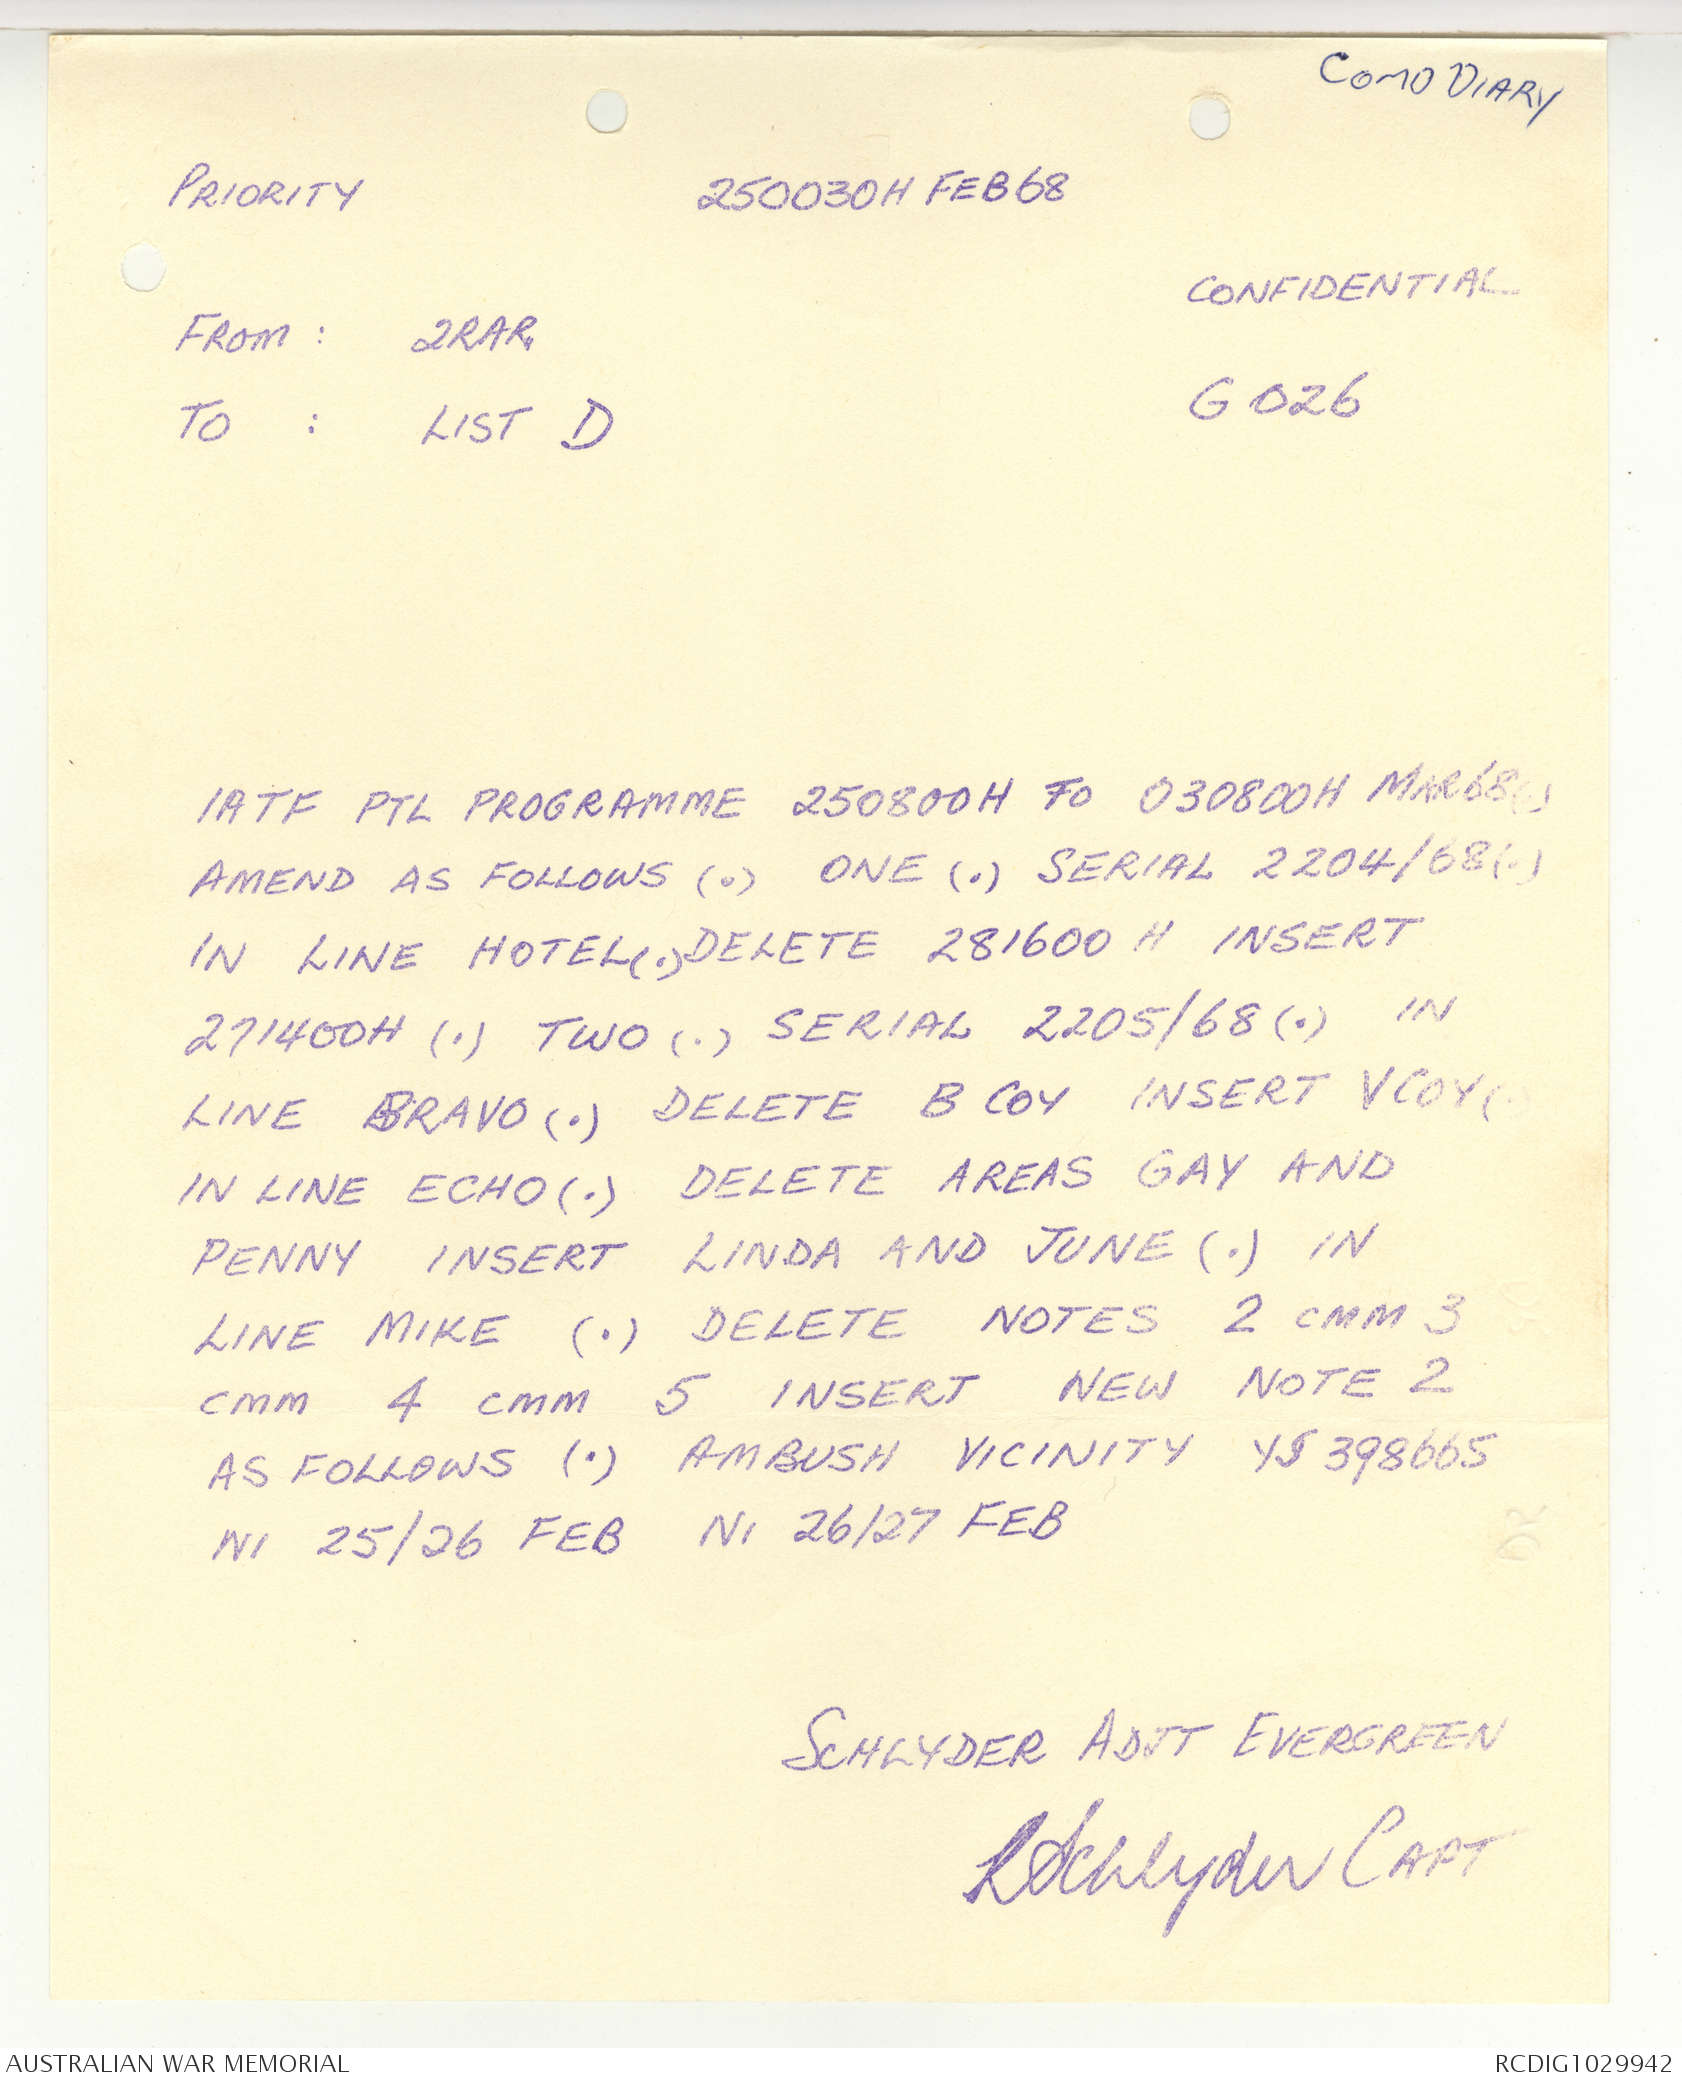 COMD DIARY
PRIORITY 250030H FEB 68
CONFIDENTIAL
FROM : 2RAR
G 026
TO : LIST D
1ATF PTL PROGRAMME 250800H TO 030800H MAR68(.)
AMEND AS FOLLOWS (.) ONE (.) SERIAL 2204/68(.)
IN LINE HOTEL(.) DELETE 281600H INSERT
271400H (.) TWO (.) SERIAL 2205/68 (.) IN
LINE BRAVO (.) DELETE B COY INSERT V COY(.)
IN LINE ECHO (.) DELETE AREAS GAY AND
PENNY INSERT LINDA AND JUNE (.) IN
LINE MIKE (.) DELETE NOTES 2 CMM 3
CMM 4 CMM 5 INSERT NEW NOTE 2
AS FOLLOWS (.) AMBUSH VICINITY YS 398665
NI 25/26 FEB NI 26/27 FEB
SCHLYDER ADJT EVERGREEN
R Schlyder CAPT
AUSTRALIAN WAR MEMORIAL RCDIG1029942